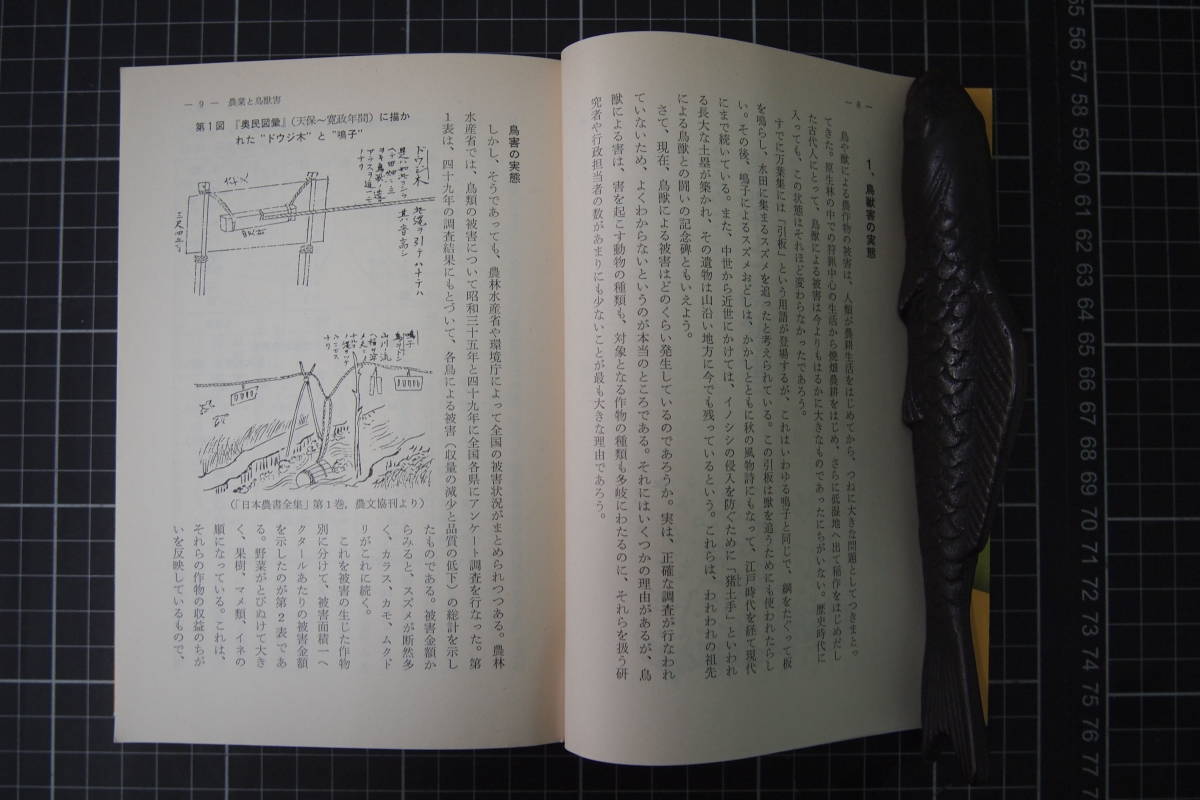 — 8 —
1、鳥獣害の実態
鳥や獣による農作物の被害は、人類が農耕生活をはじめてから、つねに大きな問題としてつきまと。
てきた。原生林の中での狩猟中心の生活から焼畑農耕をはじめ、さらに低湿地へ出て稲作をはじめだし
た古代人にとって、鳥獣による被害は今よりもはるかに大きなものであったにちがいない。歴史時代に
入っても、この状態はそれほど変わらなかったであろう。
すでに万葉集には「引板」という用語が登場するが、これはいわゆる鳴子と同じで、綱をたぐって板
を鳴らし、水田に集まるスズメを追ったと考えられている。この引板は獣を追うためにも使われたらし
い。その後、鳴子によるスズメおどしは、かかしとともに秋の風物詩にもなって、江戸時代を経て現代
にまで続いている。また、中世から近世にかけては、イノシシの侵入を防ぐために「猪土手」といわれ
る長大な土塁が築かれ、その遺物は山沿い地方に今でも残っているという。これらは、われわれの祖先
による鳥獣との闘いの記念碑ともいえよう。
さて、現在、鳥獣による被害はどのくらい発生しているのであろうか。実は、正確な調査が行なわれ
ていないため、よくわからないというのが本当のところである。それにはいくつかの理由があるが、鳥
獣による害は、害を起こす動物の種類も、対象となる作物の種類も多岐にわたるのに、それらを扱う研
究者や行政担当者の数があまりにも少ないことが最も大きな理由であろう。
— 9 — 農業と鳥獣害
鳥害の実態
しかし、そうであっても、農林水産省や環境庁によって全国の被害状況がまとめられつつある。農林
水産省では、鳥類の被害について昭和三十五年と四十九年に全国各県にアンケート調査を行なった。第
1表は、四十九年の調査結果にもとづいて、各鳥による被害（収量の減少と品質の低下）の総計を示し
たものである。被害金額か
らみると、スズメが断然多
く、カラス、カモ、ムクド
リがこれに続く。
これを被害の生じた作物
別に分けて、被害面積一ヘ
クタールあたりの被害金額
を示したのが第2表であ
る。野菜がとびぬけて大き
く、果樹、マメ類、イネの
順になっている。これは、
それらの作物の収益のちが
いを反映しているもので、
第1図 『奥民図彙』（天保〜寛政年間）に描か
れた“ドウジ木”と“鳴子”
ドウジ木
（「日本農書全集」第1巻，農文協刊より）
55 56 57 58 59 60 61 62 63 64 65 66 67 68 69 70 71 72 73 74 75 76 77